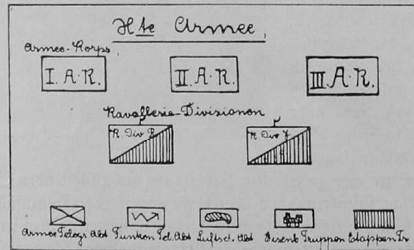 Hte Armee,
Armee-Korps
I. A. K. II. A. K. III. A. K.
Kavallerie-Divisionen
K. Div B K. Div 7
Armee Telegr. Abt Funken Tel. Abt Luftsch. Abt Eisenb Truppen Etappen Tr